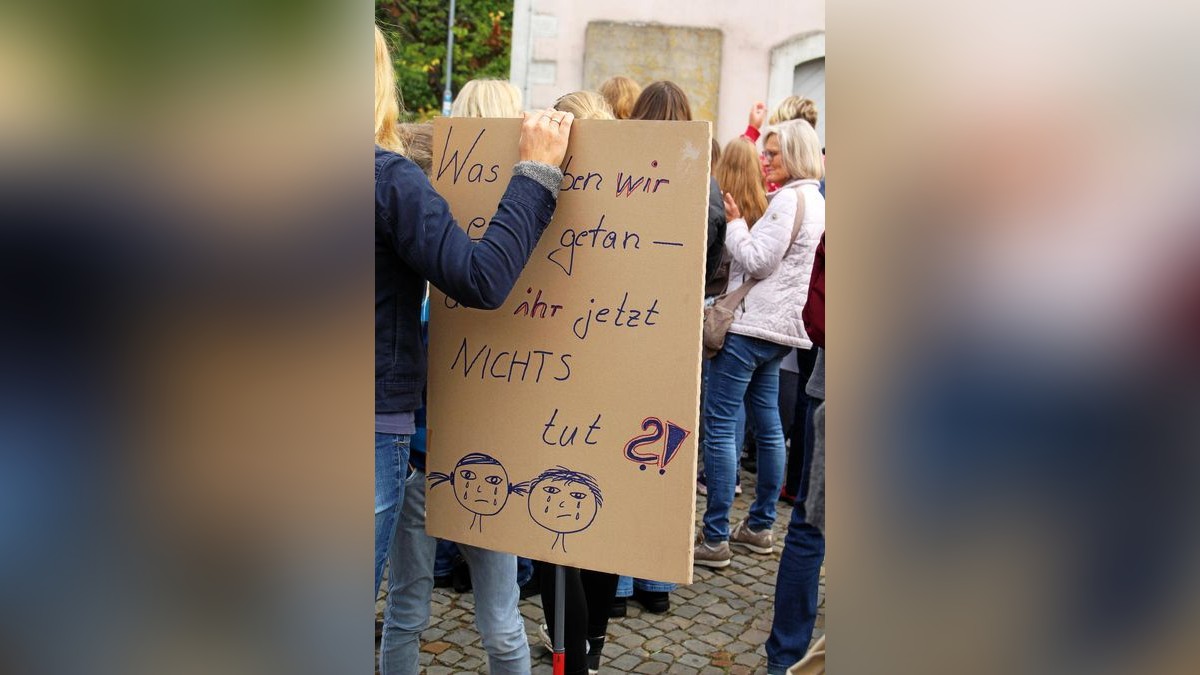 Was wir
getan —
ihr jetzt
NICHTS
tut ?!